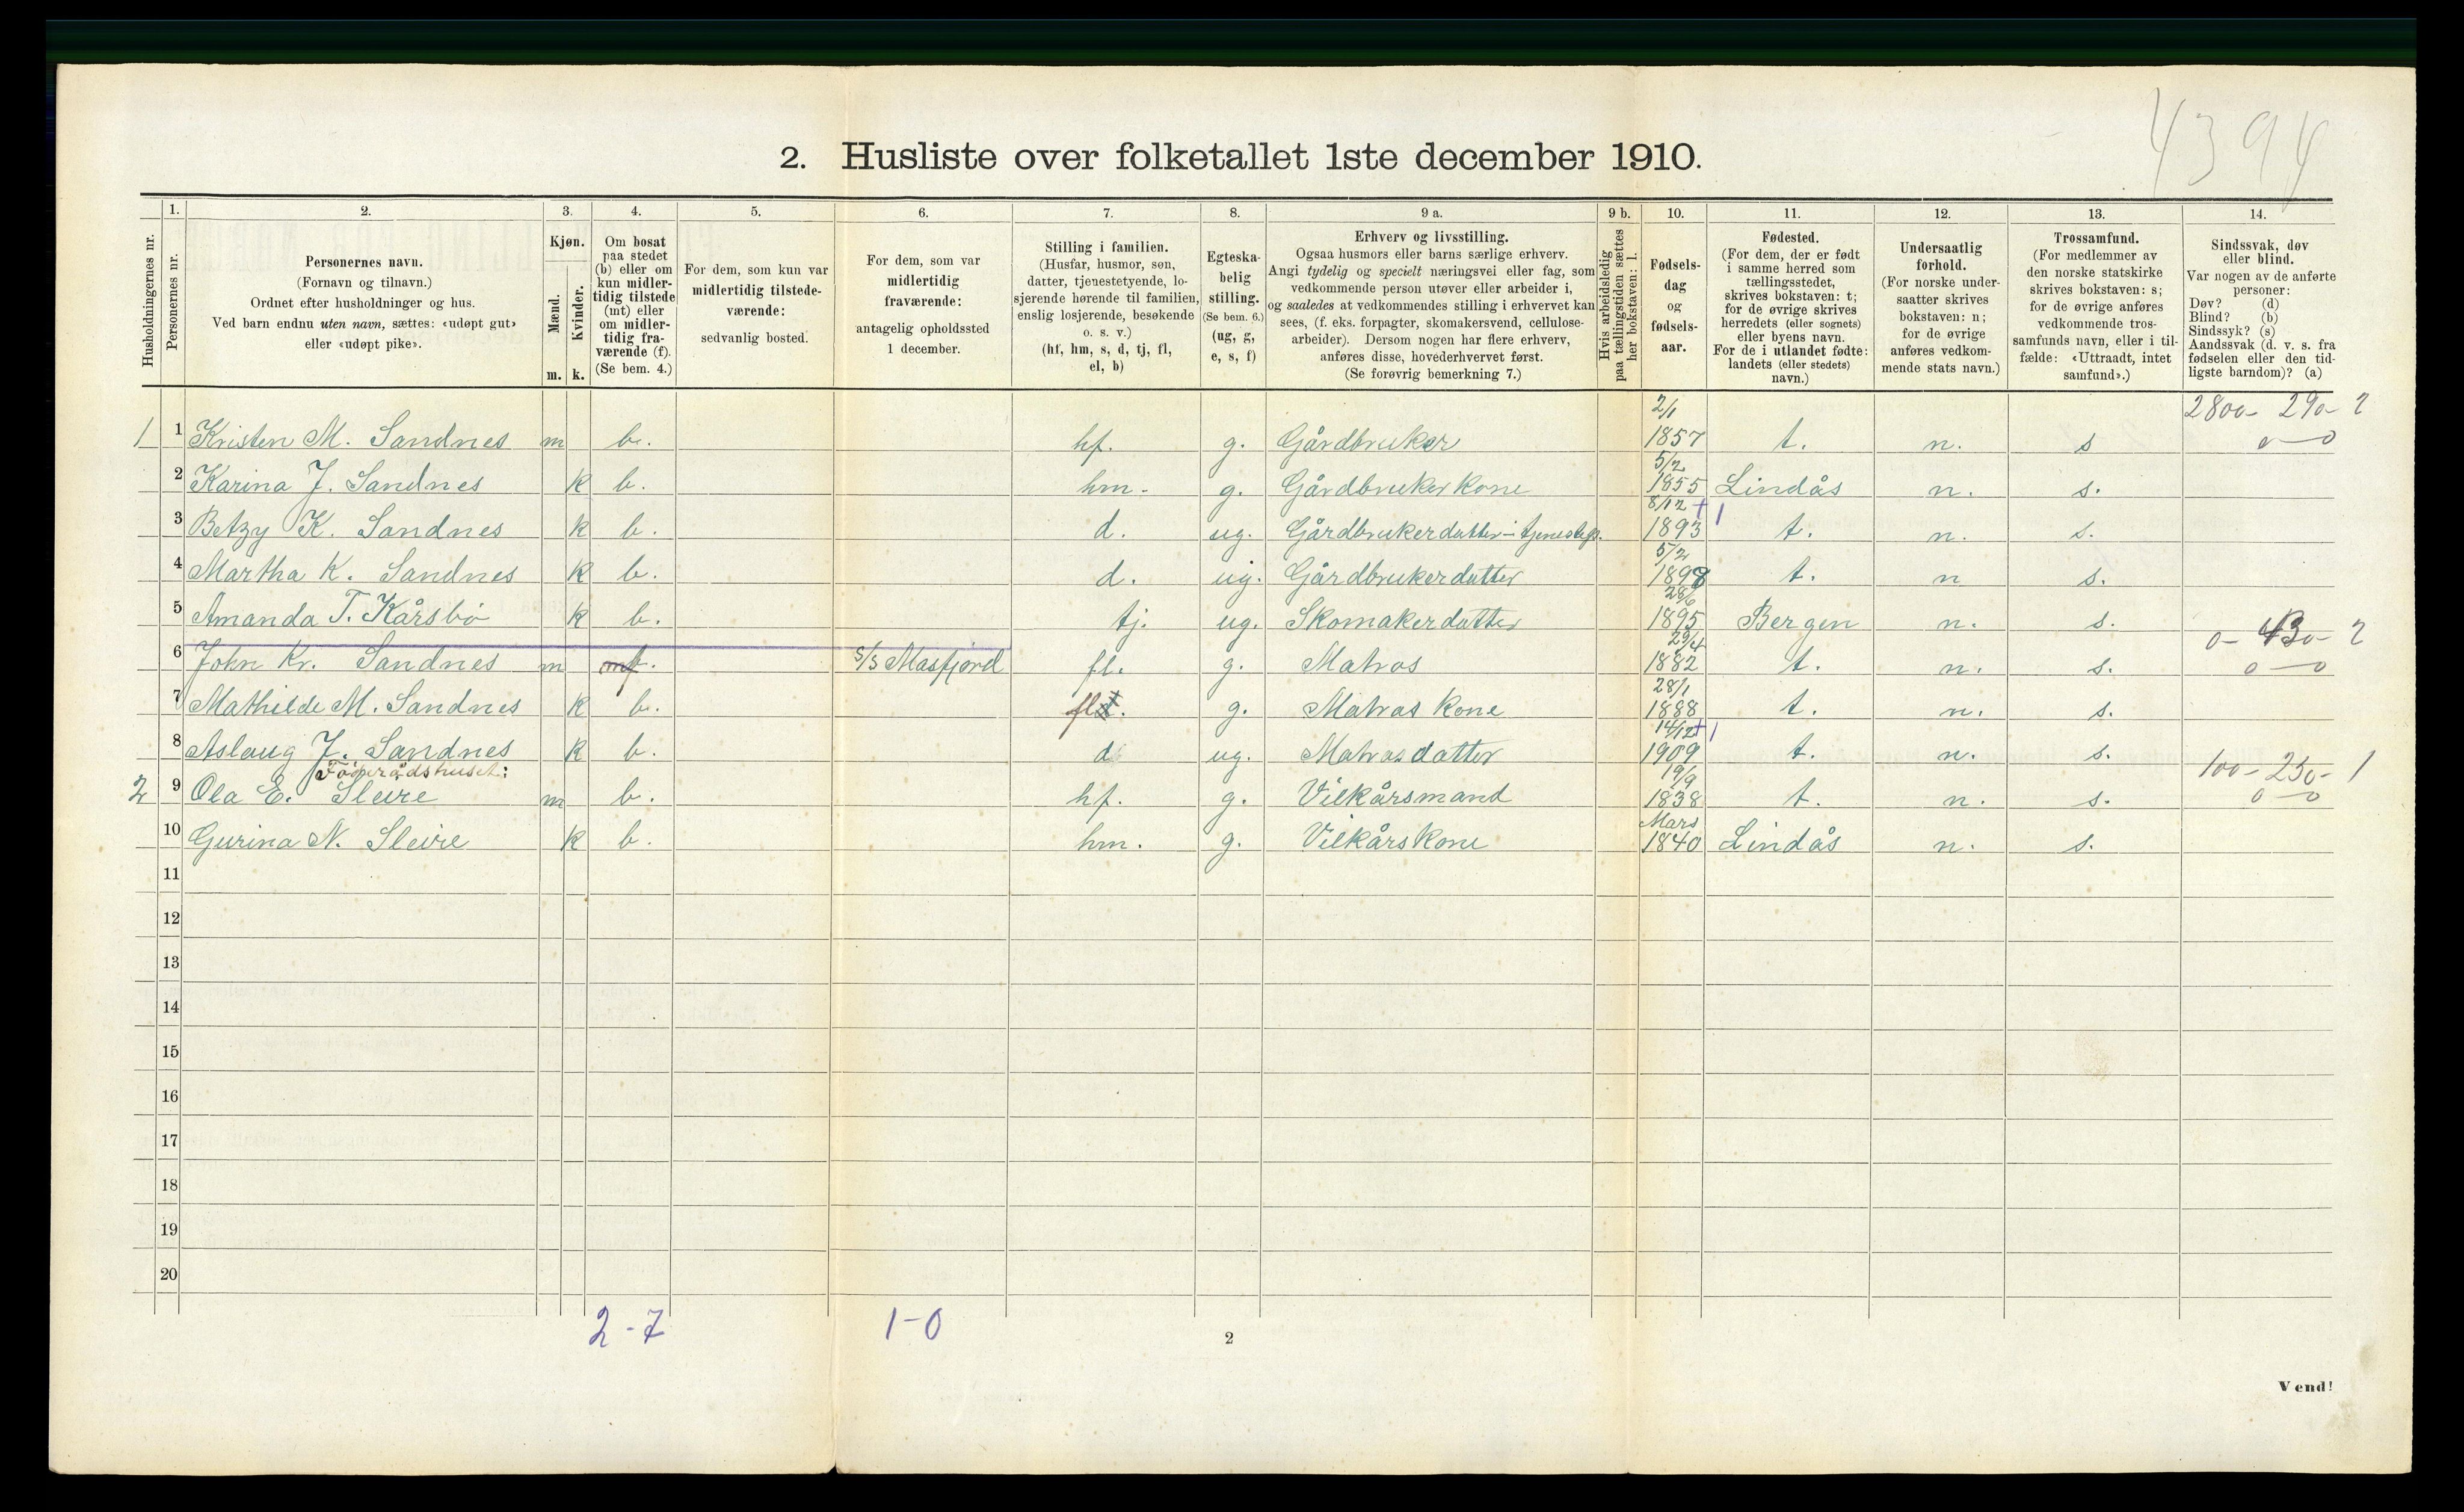 4394
2. Husliste over folketallet 1ste december 1910.
Husholdningernes nr.
1. Personernes nr.
2. Personernes navn. (Fornavn og tilnavn.) Ordnet efter husholdninger og hus. Ved barn endnu uten navn, sættes: «udøpt gut» eller «udøpt pike».
3. Kjøn. Mænd. m. Kvinder. k.
4. Om bosat paa stedet (b) eller om kun midlertidig tilstede (mt) eller om midlertidig fraværende (f). (Se bem. 4.)
5. For dem, som kun var midlertidig tilstedeværende: sedvanlig bosted.
6. For dem, som var midlertidig fraværende: antagelig opholdssted 1 december.
7. Stilling i familien. (Husfar, husmor, søn, datter, tjenestetyende, losjerende hørende til familien, enslig losjerende, besøkende o. s. v.) (hf, hm, s, d, tj, fl, el, b)
8. Egteskabelig stilling. (Se bem. 6.) (ug, g, e, s, f)
9 a. Erhverv og livsstilling. Ogsaa husmors eller barns særlige erhverv. Angi tydelig og specielt næringsvei eller fag, som vedkommende person utøver eller arbeider i, og saaledes at vedkommendes stilling i erhvervet kan sees, (f. eks. forpagter, skomakersvend, cellulosearbeider). Dersom nogen har flere erhverv, anføres disse, hovederhvervet først. (Se forøvrig bemerkning 7.)
9 b. Hvis arbeidsledig paa tællingstiden sættes her bokstaven: l.
10. Fødselsdag og fødselsaar.
11. Fødested. (For dem, der er født i samme herred som tællingsstedet, skrives bokstaven: t; for de øvrige skrives herredets (eller sognets) eller byens navn. For de i utlandet fødte: landets (eller stedets) navn.)
12. Undersaatlig forhold. (For norske undersaatter skrives bokstaven: n; for de øvrige anføres vedkommende stats navn.)
13. Trossamfund. (For medlemmer av den norske statskirke skrives bokstaven: s; for de øvrige anføres vedkommende trossamfunds navn, eller i tilfælde: «Uttraadt, intet samfund».)
14. Sindssvak, døv eller blind. Var nogen av de anførte personer: Døv? (d) Blind? (b) Sindssyk? (s) Aandssvak (d. v. s. fra fødselen eller den tidligste barndom)? (a)
2800 - 290 - 2
1 1 Kristen M. Sandnes m b. hf. g. Gårdbruker 2/1 1857 t. n. s 0 - 0
2 Karina J. Sandnes k b. hm. g. Gårdbrukerkone 5/2 1855 Lindås n. s.
3 Betzy K. Sandnes k b. d. ug. Gårdbrukerdatter - 8/12 1893 t. n. s.
4 Martha K. Sandnes k b. d. ug. Gårdbrukerdatter 5/2 1898 t. n s.
5 Amanda T. Kårsbö k b. tj. ug. Skomakerdatter 28/6 1895 Bergen n. s.
0 - 430 - 2
6 John Kr. Sandnes m f. s/s Masfjord fl. g. Matros 29/4 1882 t. n. s. 0 - 0
7 Mathilde M. Sandnes k b. fl. g. Matroskone 28/1 1888 t. n. s.
8 Aslaug J. Sandnes k b. d ug. Matrosdatter 14/12 1909 t. n. s.
Föderådshuset: 100 - 250 - 1
2 9 Ola E. Sleire m b. hf. g. Vilkårsmand 19/9 1838 t. n. s. 0 - 0
10 Gurina N. Sleire k b. hm. g. Vilkårskone Mars 1840 Lindås n. s.
11
12
13
14
15
16
17
18
19
20
2 - 7 1 - 0
2
Vend!